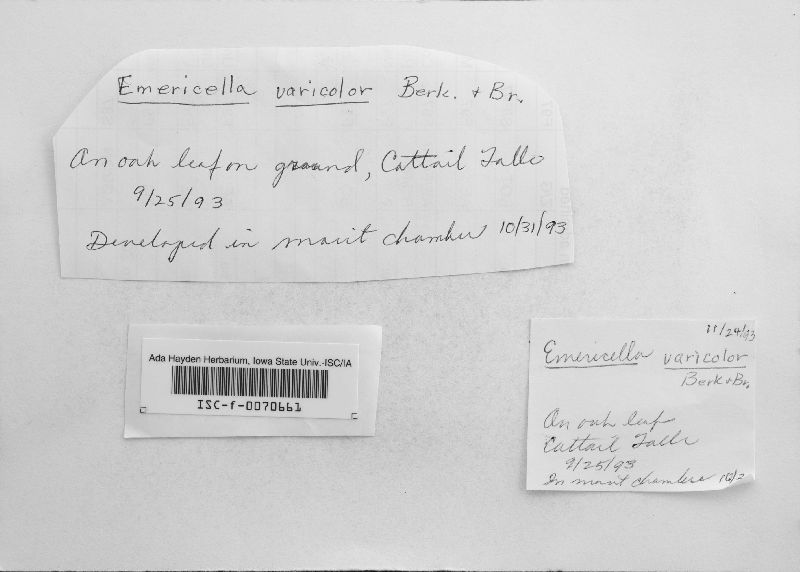 Emericella varicolor Berk. + Br.
On oak leaf on ground, Cattail Falls
9/25/93
Developed in moist chamber 10/31/93
Ada Hayden Herbarium, Iowa State Univ.-ISC/IA
ISC-f-0070661
11/24/93
Emericella varicolor
Berk + Br.
On oak leaf
Cattail Falls
9/25/93
In moist chambers